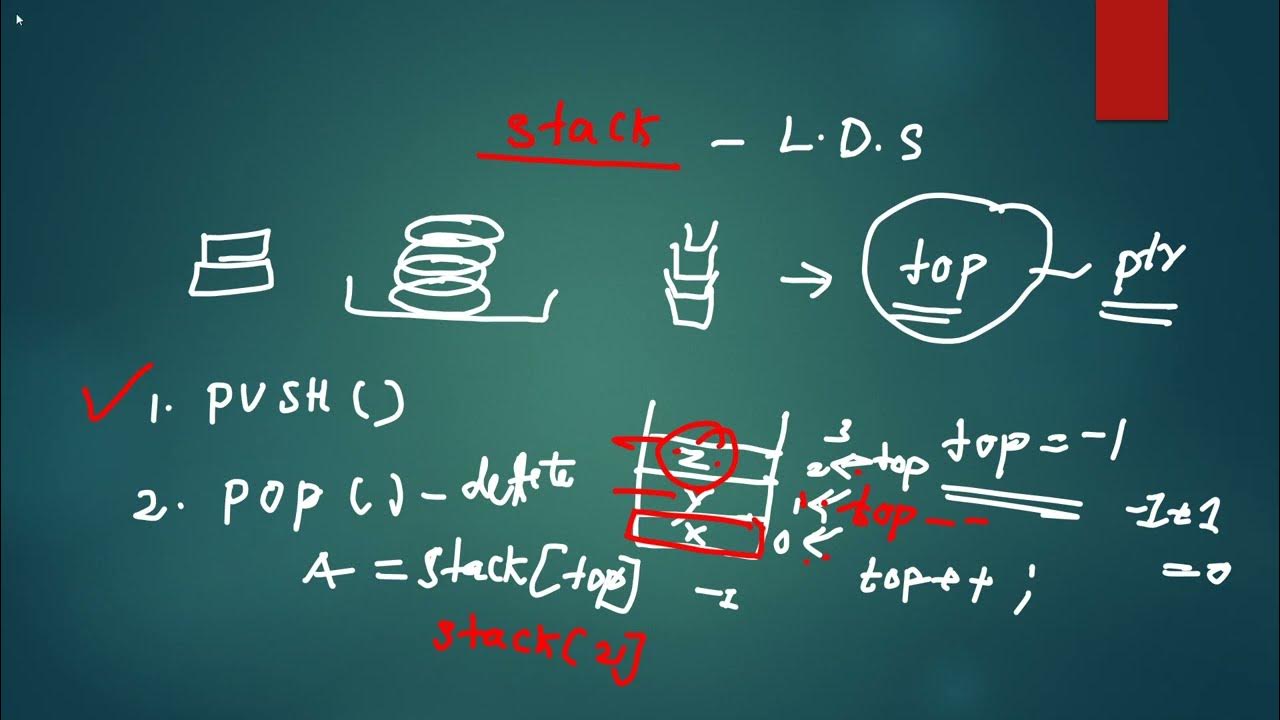 stack - L.D.S
top ptr
1. PUSH()
2. POP() - delete
A = stack[top]
stack[2]
Z
Y
X
3
2 top
1 top--
0
-1
top = -1
top++;
-1+1
=0